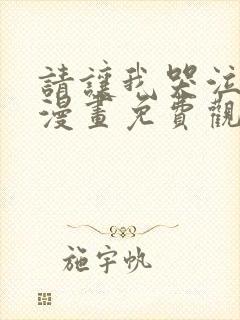 請讓我哭泣
漫畫免費觀
施宇帆